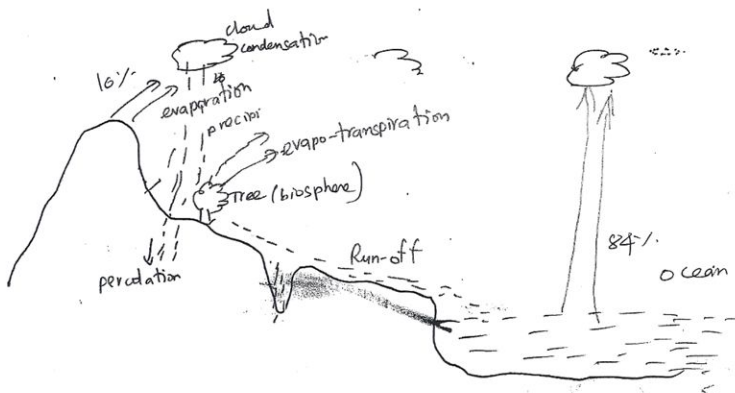 cloud
condensation
16%
evaporation
precipi
evapo-transpiration
Tree (biosphere)
percolation
Run-off
84%
Ocean